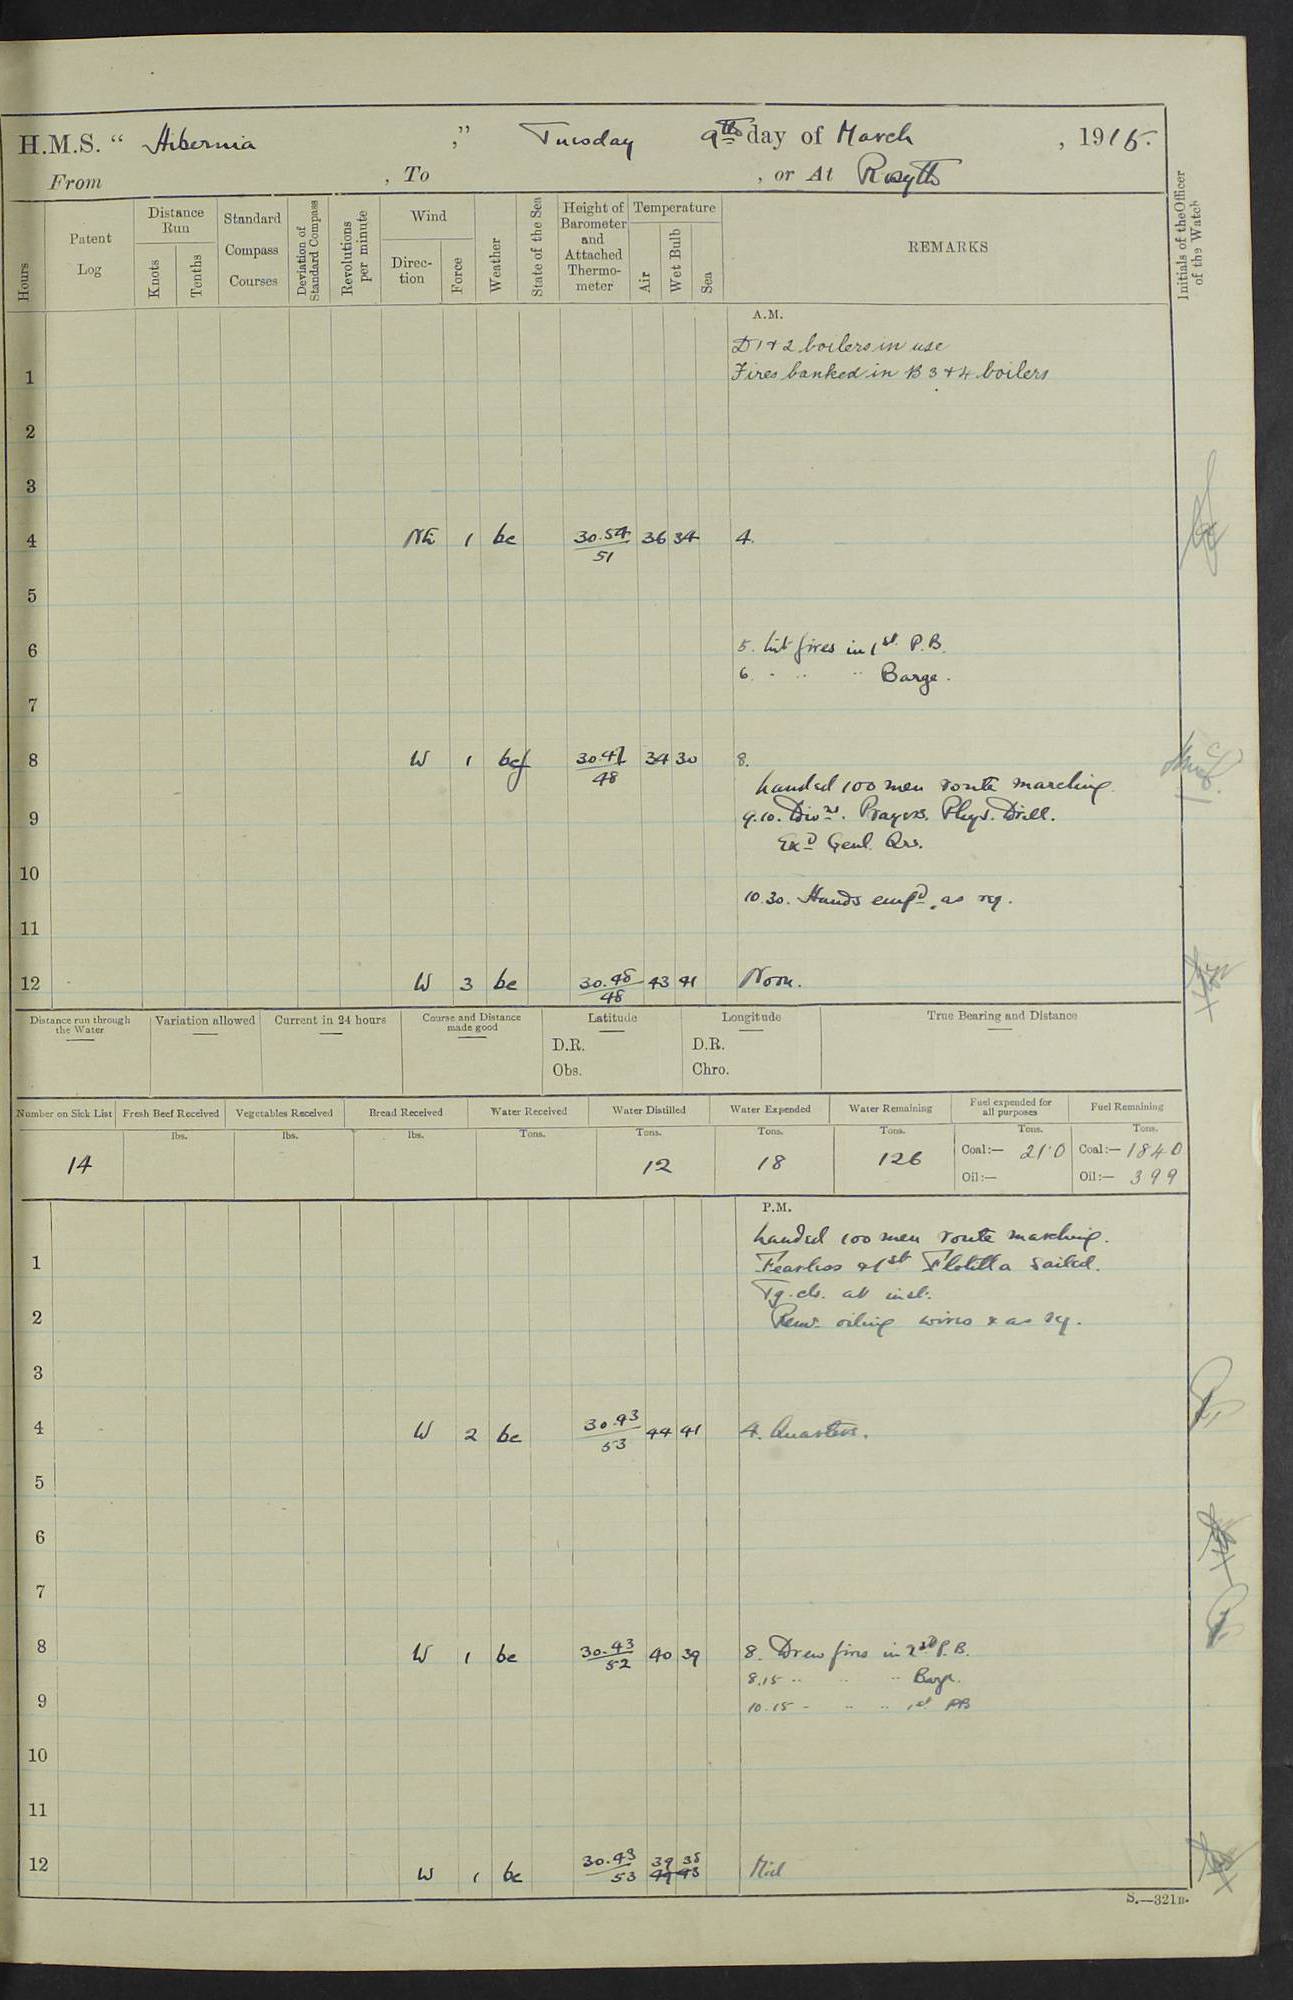 H.M.S. " Hibernia ," Tuesday 9th day of March , 1915.
From , To , or At Rosyth
Hours
Patent Log
Distance Run
Knots
Tenths
Standard Compass Courses
Deviation of Standard Compass
Revolutions per minute
Wind
Direc-tion
Force
Weather
State of the Sea
Height of Barometer and Attached Thermo-meter
Temperature
Air
Wet Bulb
Sea
REMARKS
Initials of the Officer of the Watch
A.M.
D 1 & 2 boilers in use
1 Fires banked in B 3 & 4 boilers
2
3
4 NE 1 bc 30.54/51 36 34 4.
5
6 5. Lit fires in 1st P.B.
6. " " " Barge.
7
8 W 1 bcf 30.47/48 34 30 8.
Landed 100 men route marching.
9 9.10. Divns. Prayers. Phys. Drill.
Exd Genl. Qrs.
10
10.30. Hands empd. as rq.
11
12 W 3 bc 30.48/48 43 41 Noon.
Distance run through the Water
Variation allowed
Current in 24 hours
Course and Distance made good
Latitude
D.R.
Obs.
Longitude
D.R.
Chro.
True Bearing and Distance
Number on Sick List Fresh Beef Received Vegetables Received Bread Received Water Received Water Distilled Water Expended Water Remaining Fuel expended for all purposes Fuel Remaining
lbs. lbs. lbs. Tons. Tons. Tons. Tons. Tons. Tons.
14 12 18 126 Coal:— 21.0 Coal:— 1840
Oil:— Oil:— 399
P.M.
Landed 100 men route marching.
1 Fearless & 1st Flotilla sailed.
Tg. cls. at inst:
2 Remr oiling wires & as rq.
3
4 W 2 bc 30.43/53 44 41 4. Quarters.
5
6
7
8 W 1 bc 30.43/52 40 39 8. Drew fires in 2nd P.B.
8.15 " " " Barge.
9 10.15 " " " 1st PB
10
11
12 W 1 bc 30.43/53 39 38 Mid
S.—321B.